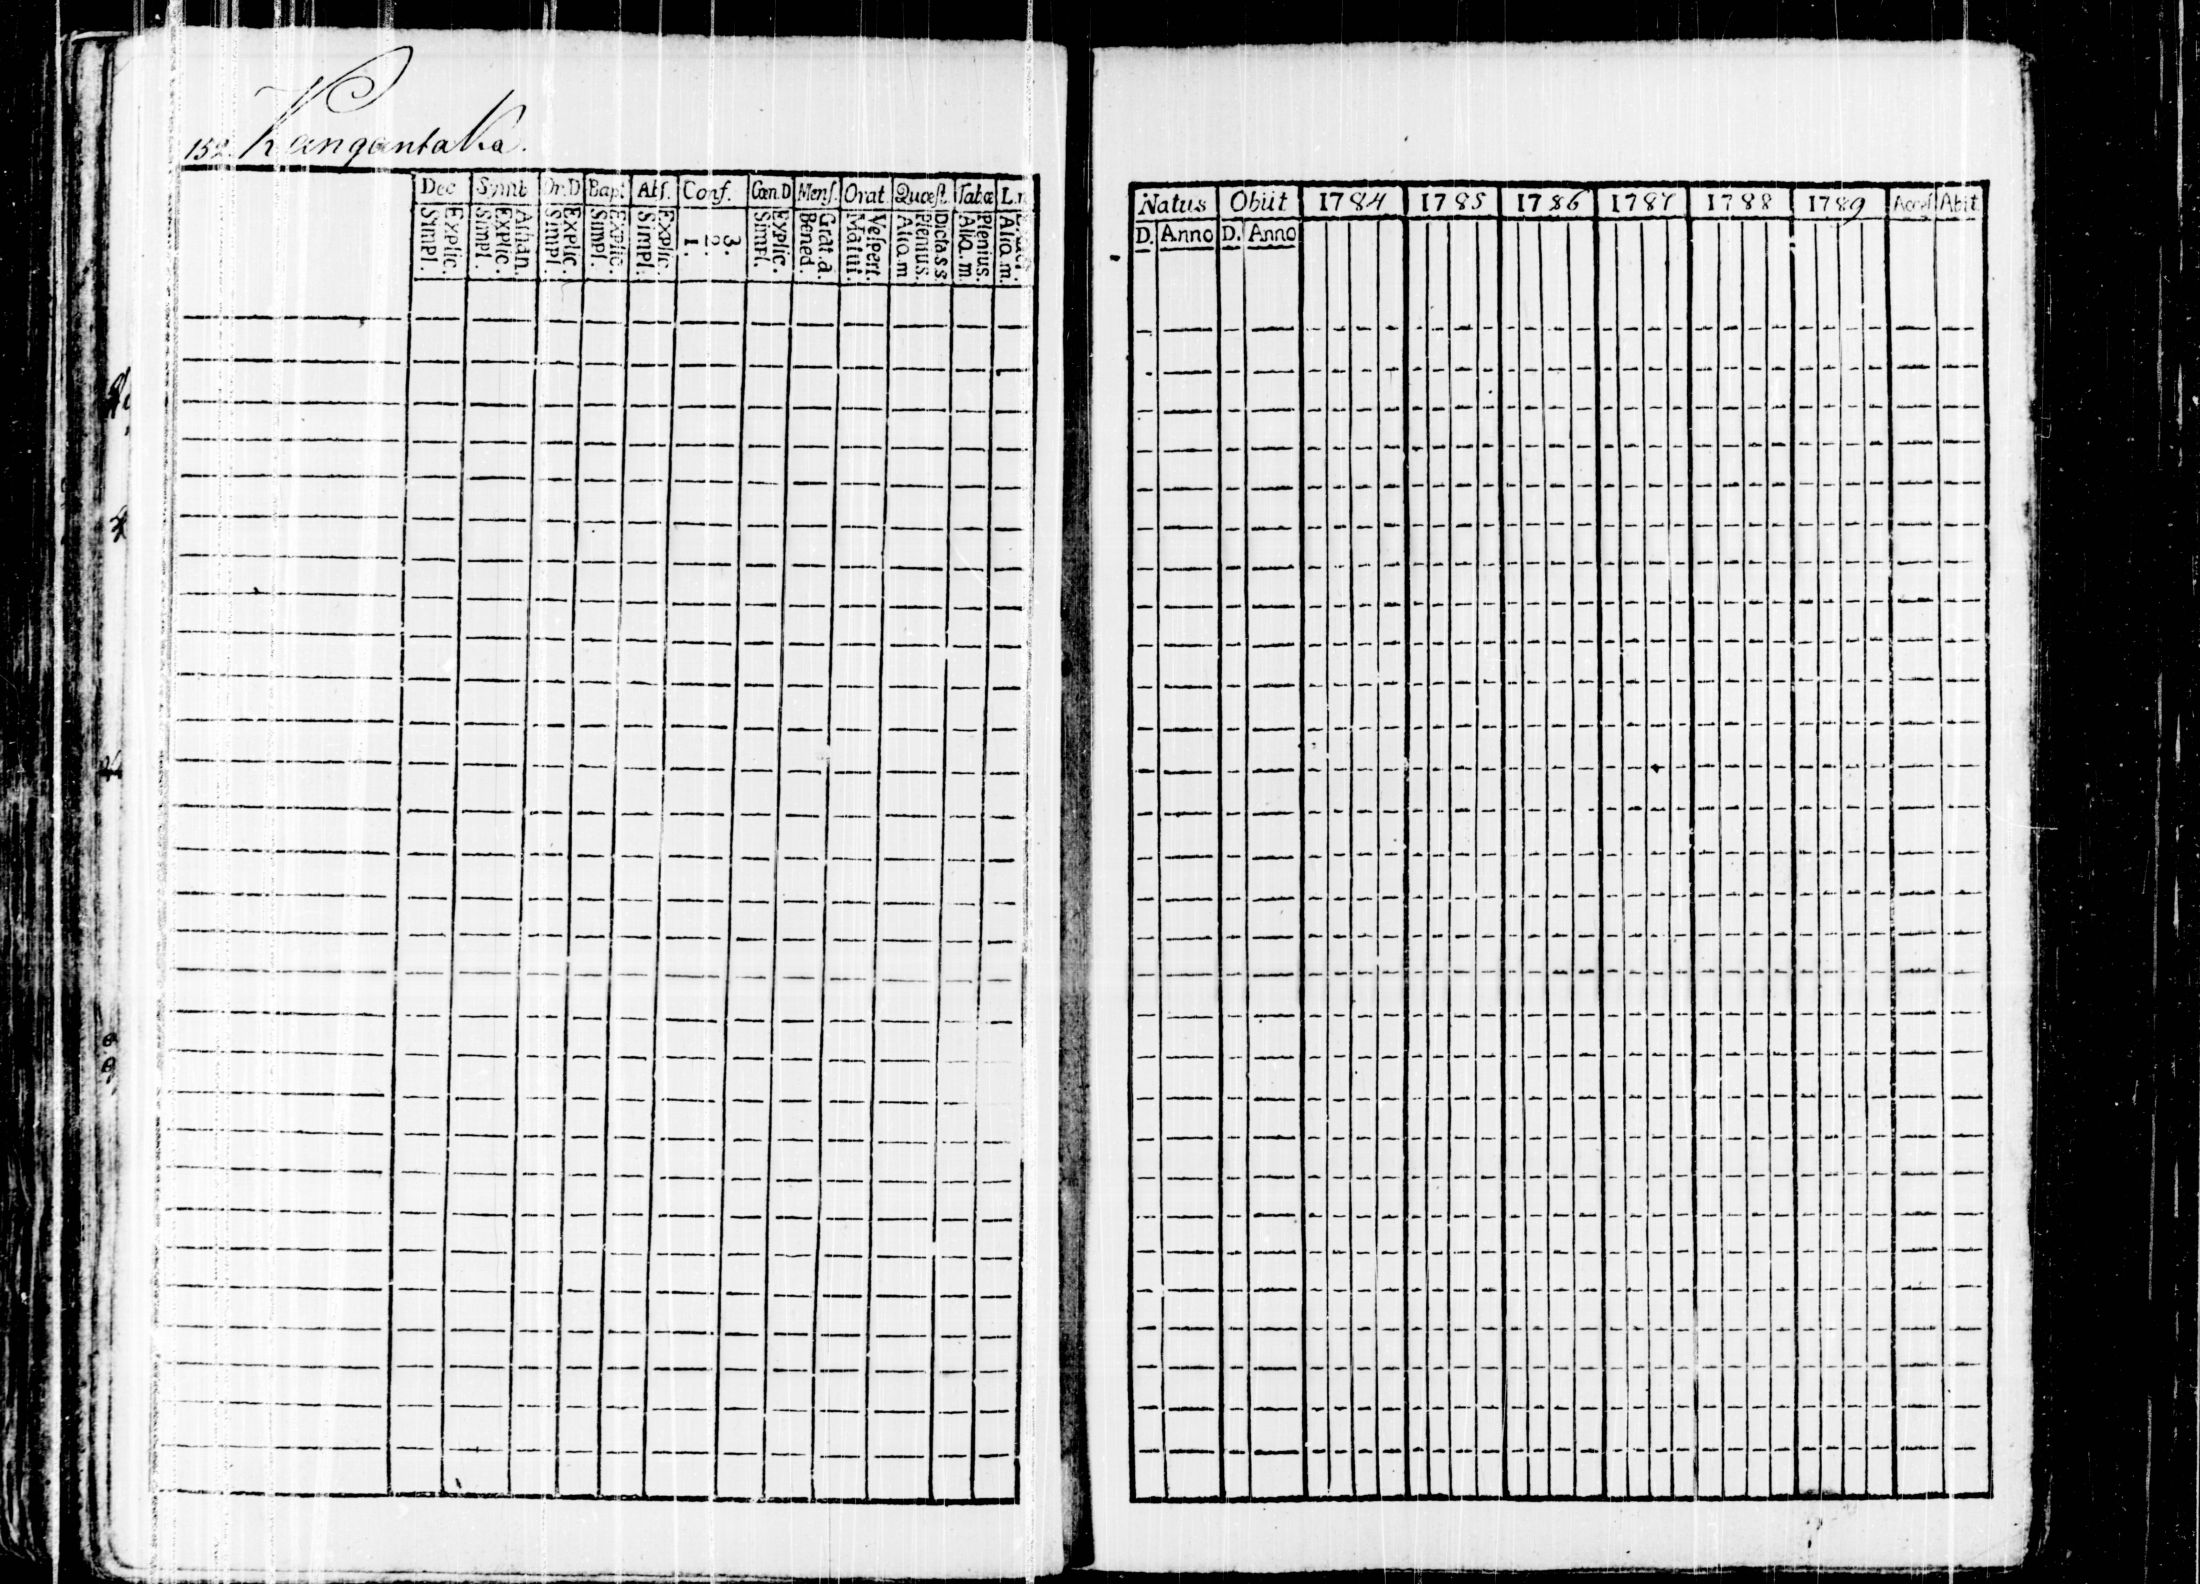 152. Kangantaka.
Dec Symb Or.D Bapt Abs. Conf. Cœn.D Mens. Orat. Quæst. Tabæ L.
Explic. Simpl. Athan. Explic. Simpl. Explic. Simpl. Explic. Simpl. Explic. Simpl. 3. 2. 1. Explic. Simpl. Grat.a. Bened. Vespert. Matut. Dicta s s Plenius. Aliq.m Plenius. Aliq.m. Aliq.m.
Natus Obiit 1784 1785 1786 1787 1788 1789 Abiit
D. Anno D. Anno